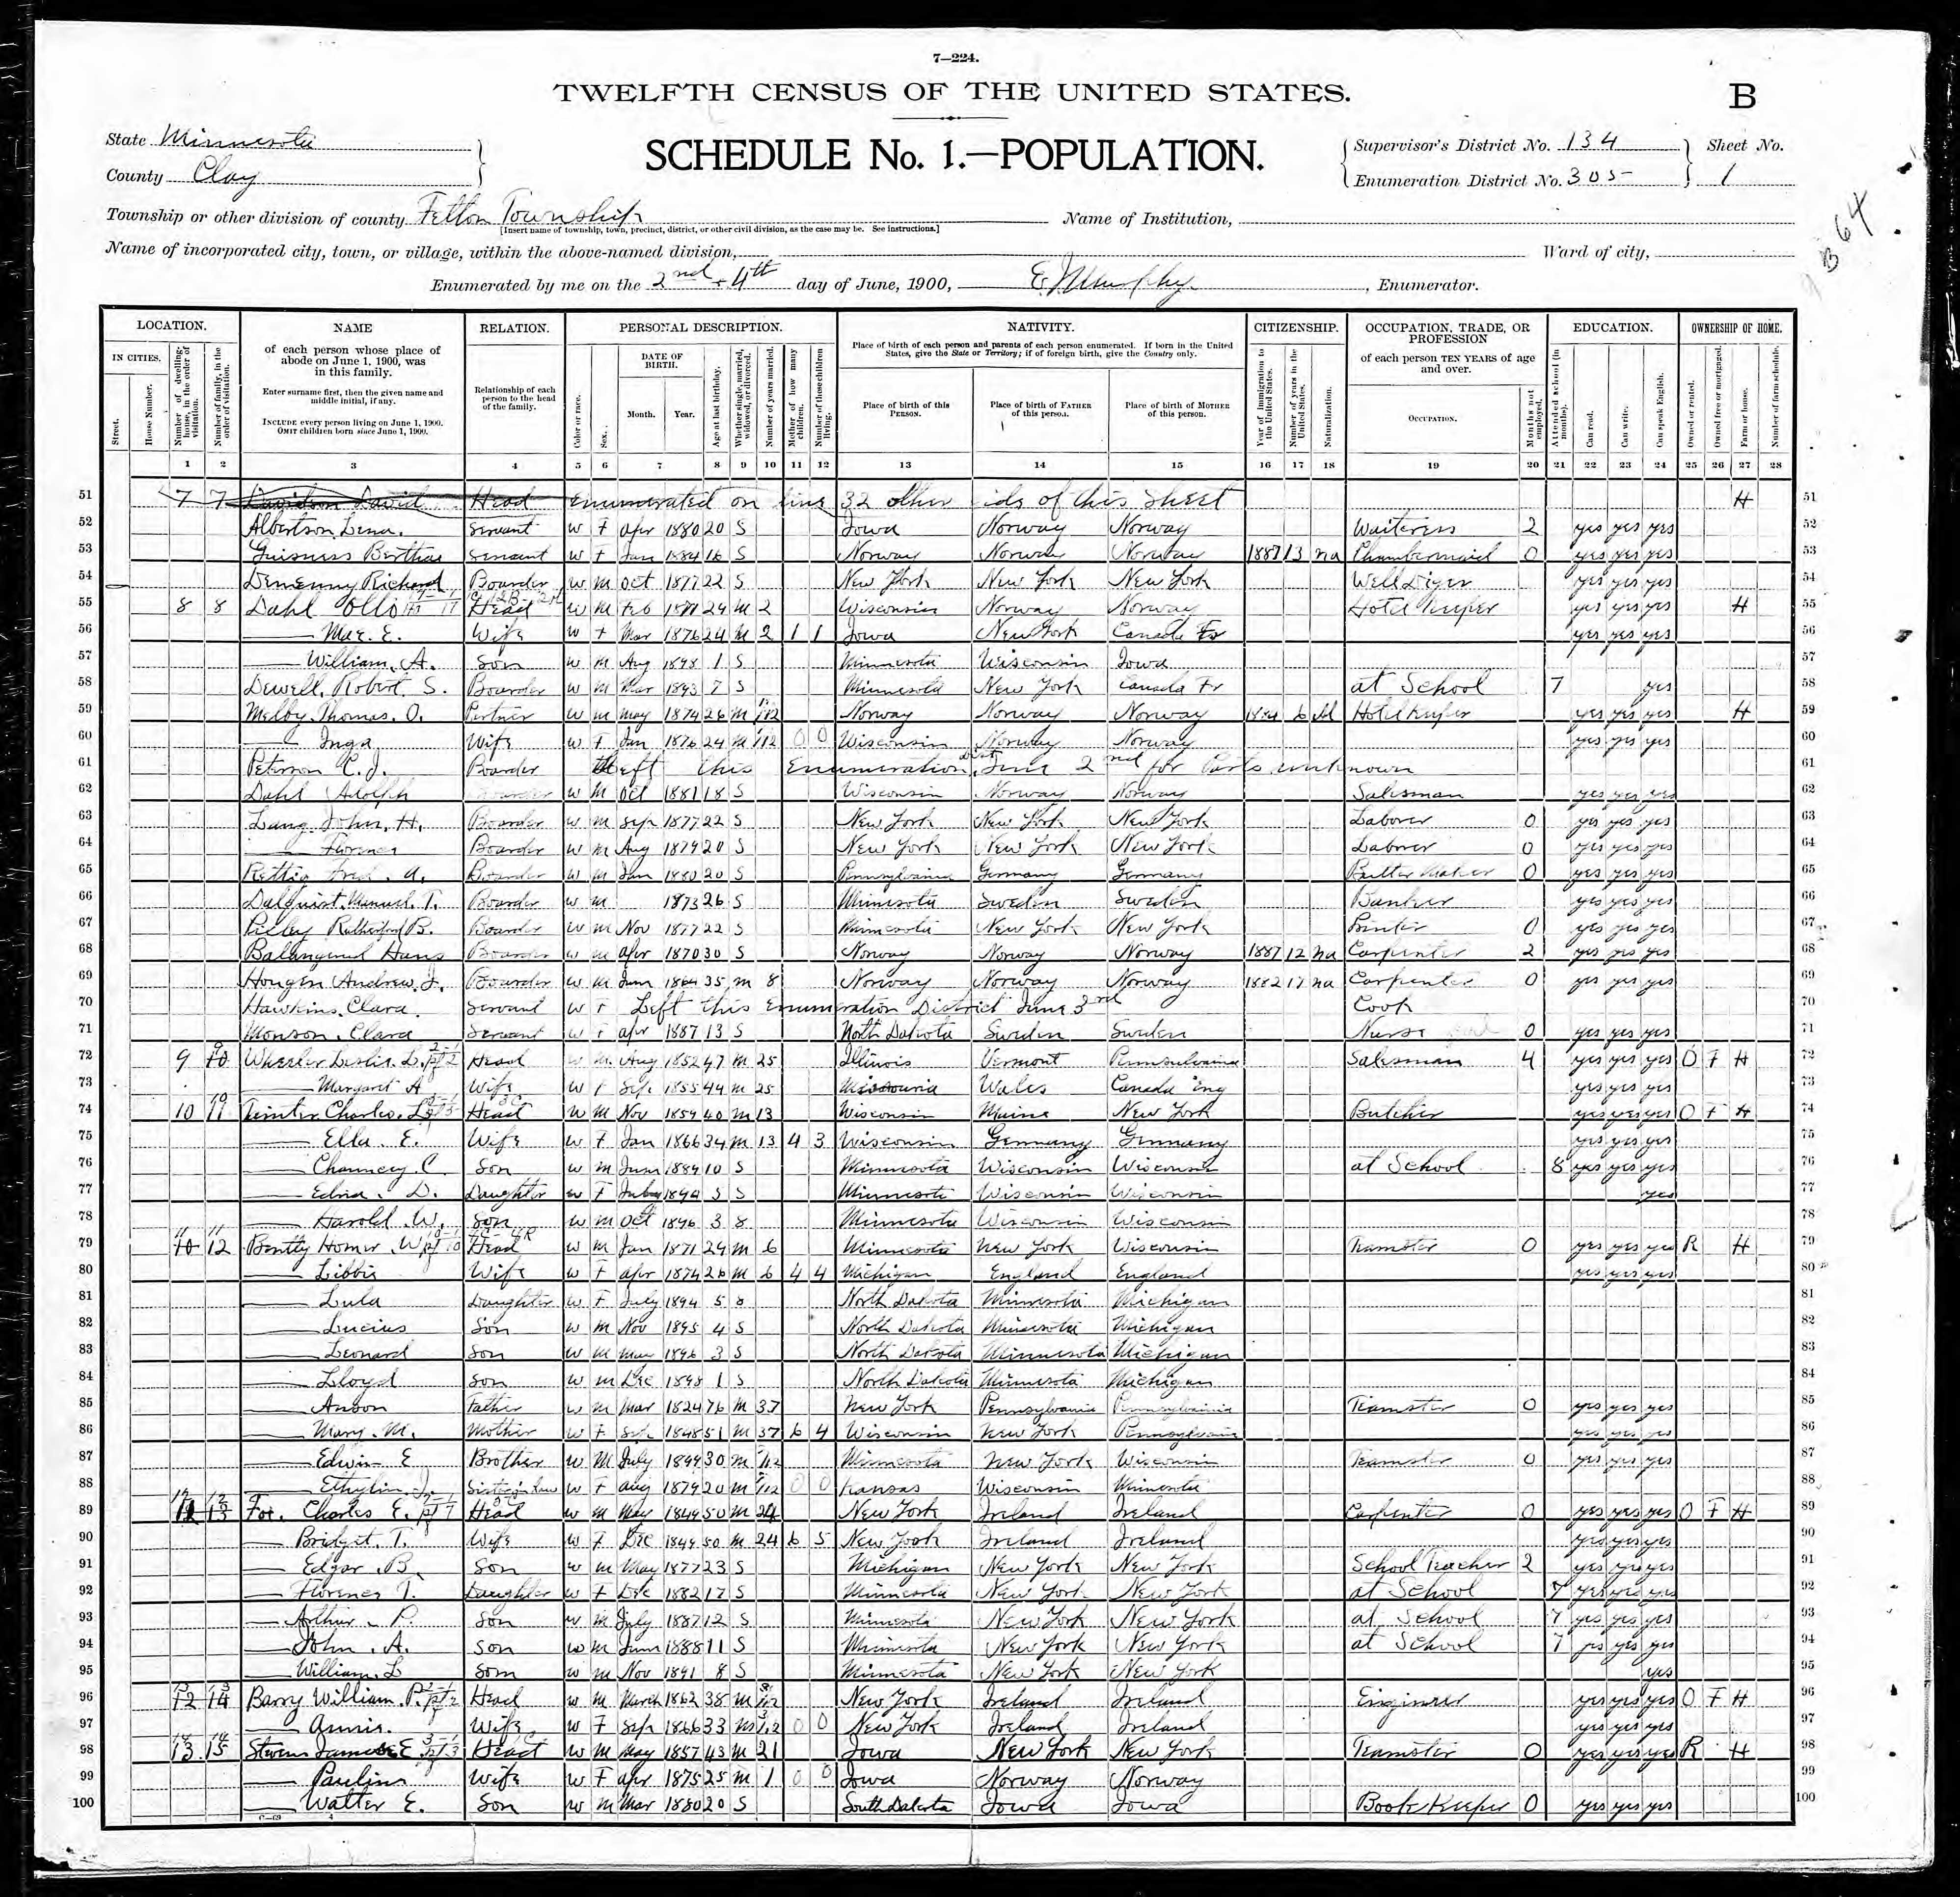 7—224.
TWELFTH CENSUS OF THE UNITED STATES.
B
State Minnesota
County Clay
SCHEDULE No. 1.—POPULATION.
Supervisor's District No. 134
Enumeration District No. 305
Sheet No.
1
Township or other division of county Felton Township
[Insert name of township, town, precinct, district, or other civil division, as the case may be. See instructions.]
Name of Institution,
Name of incorporated city, town, or village, within the above-named division,
Ward of city,
B 64
Enumerated by me on the 2nd + 4th day of June, 1900, E J Murphy, Enumerator.
LOCATION. NAME RELATION. PERSONAL DESCRIPTION. NATIVITY. CITIZENSHIP. OCCUPATION, TRADE, OR PROFESSION EDUCATION. OWNERSHIP OF HOME.
IN CITIES. Street. House Number.
Number of dwelling-house, in the order of visitation.
Number of family, in the order of visitation.
of each person whose place of abode on June 1, 1900, was in this family.
Enter surname first, then the given name and middle initial, if any.
INCLUDE every person living on June 1, 1900.
OMIT children born since June 1, 1900.
Relationship of each person to the head of the family.
Color or race. Sex. DATE OF BIRTH. Month. Year. Age at last birthday. Whether single, married, widowed, or divorced. Number of years married. Mother of how many children. Number of these children living.
Place of birth of each person and parents of each person enumerated. If born in the United States, give the State or Territory; if of foreign birth, give the Country only.
Place of birth of this PERSON. Place of birth of FATHER of this person. Place of birth of MOTHER of this person.
Year of immigration to the United States. Number of years in the United States. Naturalization.
of each person TEN YEARS of age and over.
OCCUPATION. Months not employed.
Attended school (in months). Can read. Can write. Can speak English.
Owned or rented. Owned free or mortgaged. Farm or house. Number of farm schedule.
1 2 3 4 5 6 7 8 9 10 11 12 13 14 15 16 17 18 19 20 21 22 23 24 25 26 27 28
51 7 7 Davidson David Head Enumerated on line 32 other side of this sheet H 51
52 Albertson, Lena. Servant W F Apr 1880 20 S Iowa Norway Norway Waitress 2 yes yes yes 52
53 Servant W F Jan 1884 16 S Norway Norway Norway 1887 13 na Chambermaid 0 yes yes yes 53
54 Demenny Richard Boarder W M Oct 1877 22 S New York New York New York Well Diger yes yes yes 54
55 8 8 Dahl Head W M Feb 29 M 2 Wisconsin Norway Norway Hotel Keeper yes yes yes H 55
56 Mae. E. Wife W F Mar 1876 24 M 2 1 1 Iowa New York Canada Fr yes yes yes 56
57 William, A. Son W M Aug 1898 1 S Minnesota Wisconsin Iowa 57
58 Dewell, Robert S. Boarder W M Mar 1893 7 S Minnesota New York Canada Fr at School 7 yes 58
59 Melby, Thomas. O. Partner W M May 1874 26 M Norway Norway Norway Hotel Keeper yes yes yes H 59
60 Inga Wife W F Jan 1876 24 M 0 0 Wisconsin Norway Norway yes yes yes 60
61 Peterson C. J. Boarder Left this Enumeration Dist June 2nd for Parts unknown 61
62 Dahl Adolph Boarder W M Oct 1881 18 S Wisconsin Norway Norway Salesman yes yes yes 62
63 Lang John, H. Boarder W M Sep 1877 22 S New York New York New York Laborer 0 yes yes yes 63
64 Boarder W M Aug 1879 20 S New York New York New York Laborer 0 yes yes yes 64
65 Rettig Fred. A. Boarder W M Jan 1880 20 S Pennsylvania Germany Germany Butter Maker 0 yes yes yes 65
66 Dalquist, Manuel. T. Boarder W M 1873 26 S Minnesota Sweden Sweden Banker yes yes yes 66
67 Rutherford B. Boarder W M Nov 1877 22 S Minnesota New York New York 0 yes yes yes 67
68 Hans Boarder W M Apr 1870 30 S Norway Norway Norway 1887 12 na Carpenter 2 yes yes yes 68
69 Hougen Andrew, J. Boarder W M June 1864 35 M 8 Norway Norway Norway 1882 17 na Carpenter 0 yes yes yes 69
70 Hawkins, Clara. Servant W F Left this Enumeration District June 3rd Cook 70
71 Monson, Clara Servant W F Apr 1887 13 S North Dakota Sweden Sweden Nurse 0 yes yes yes 71
72 9 10 Wheeler Leslie. L. Head W M Aug 1852 47 M 25 Illinois Vermont Pennsylvania Salesman 4 yes yes yes O F H 72
73 Margaret A Wife W F Sep 1855 44 M 25 Wales Canada Eng yes yes yes 73
74 10 11 Charles. Head W M Nov 1859 40 M 13 Wisconsin Maine New York Butcher yes yes yes O F H 74
75 Ella E. Wife W F Jan 1866 34 M 13 4 3 Wisconsin Germany Germany yes yes yes 75
76 Chauncy. C. Son W M June 1889 10 S Minnesota Wisconsin Wisconsin at School 8 yes yes yes 76
77 Edna. D. Daughter W F July 1894 5 S Minnesota Wisconsin Wisconsin yes 77
78 Harold. W. Son W M Oct 1896 3 S Minnesota Wisconsin Wisconsin 78
79 10 12 Bently Homer. W. Head W M Jan 1871 29 M 6 Minnesota New York Wisconsin Teamster 0 yes yes yes R H 79
80 Libbie Wife W F Apr 1874 26 M 6 4 4 Michigan England England yes yes yes 80
81 Lula Daughter W F July 1894 5 S North Dakota Minnesota Michigan 81
82 Lucius Son W M Nov 1895 4 S North Dakota Minnesota Michigan 82
83 Leonard Son W M 1896 3 S North Dakota Minnesota Michigan 83
84 Lloyd Son W M Dec 1898 1 S North Dakota Minnesota Michigan 84
85 Anson Father W M Mar 1824 76 M 37 New York Pennsylvania Pennsylvania Teamster 0 yes yes yes 85
86 Mary. M. Mother W F 1848 51 M 37 6 4 Wisconsin New York Pennsylvania yes yes yes 86
87 Edwin E Brother W M July 30 M Minnesota New York Wisconsin Teamster 0 yes yes yes 87
88 Sister in Law W F Aug 1879 20 M 0 0 Kansas Wisconsin Minnesota 88
89 Charles E. Head W M May 1849 50 M 24 New York Ireland Ireland Carpenter 0 yes yes yes O F H 89
90 Bridget. T. Wife W F Dec 1849 50 M 24 6 5 New York Ireland Ireland yes yes yes 90
91 Edgar. B. Son W M May 1877 23 S Michigan New York New York School Teacher 2 yes yes yes 91
92 Florence T. Daughter W F Dec 1882 17 S Minnesota New York New York at School 7 yes yes yes 92
93 Arthur P. Son W M July 1887 12 S Minnesota New York New York at School 7 yes yes yes 93
94 John. A. Son W M June 1888 11 S Minnesota New York New York at School 7 yes yes yes 94
95 William. L Son W M Nov 1891 8 S Minnesota New York New York yes 95
96 12 14 Barry William. P. Head W M March 1862 38 M New York Ireland Ireland Engineer yes yes yes O F H 96
97 Annie. Wife W F Sep 1866 33 M 0 0 New York Ireland Ireland yes yes yes 97
98 13 15 Stevens James E Head W M May 1857 43 M 21 Iowa New York New York Teamster 0 yes yes yes R H 98
99 Pauline Wife W F Apr 1875 25 M 1 0 0 Iowa Norway Norway 99
100 Walter E. Son W M Mar 1880 20 S South Dakota Iowa Iowa Book Keeper 0 yes yes yes 100